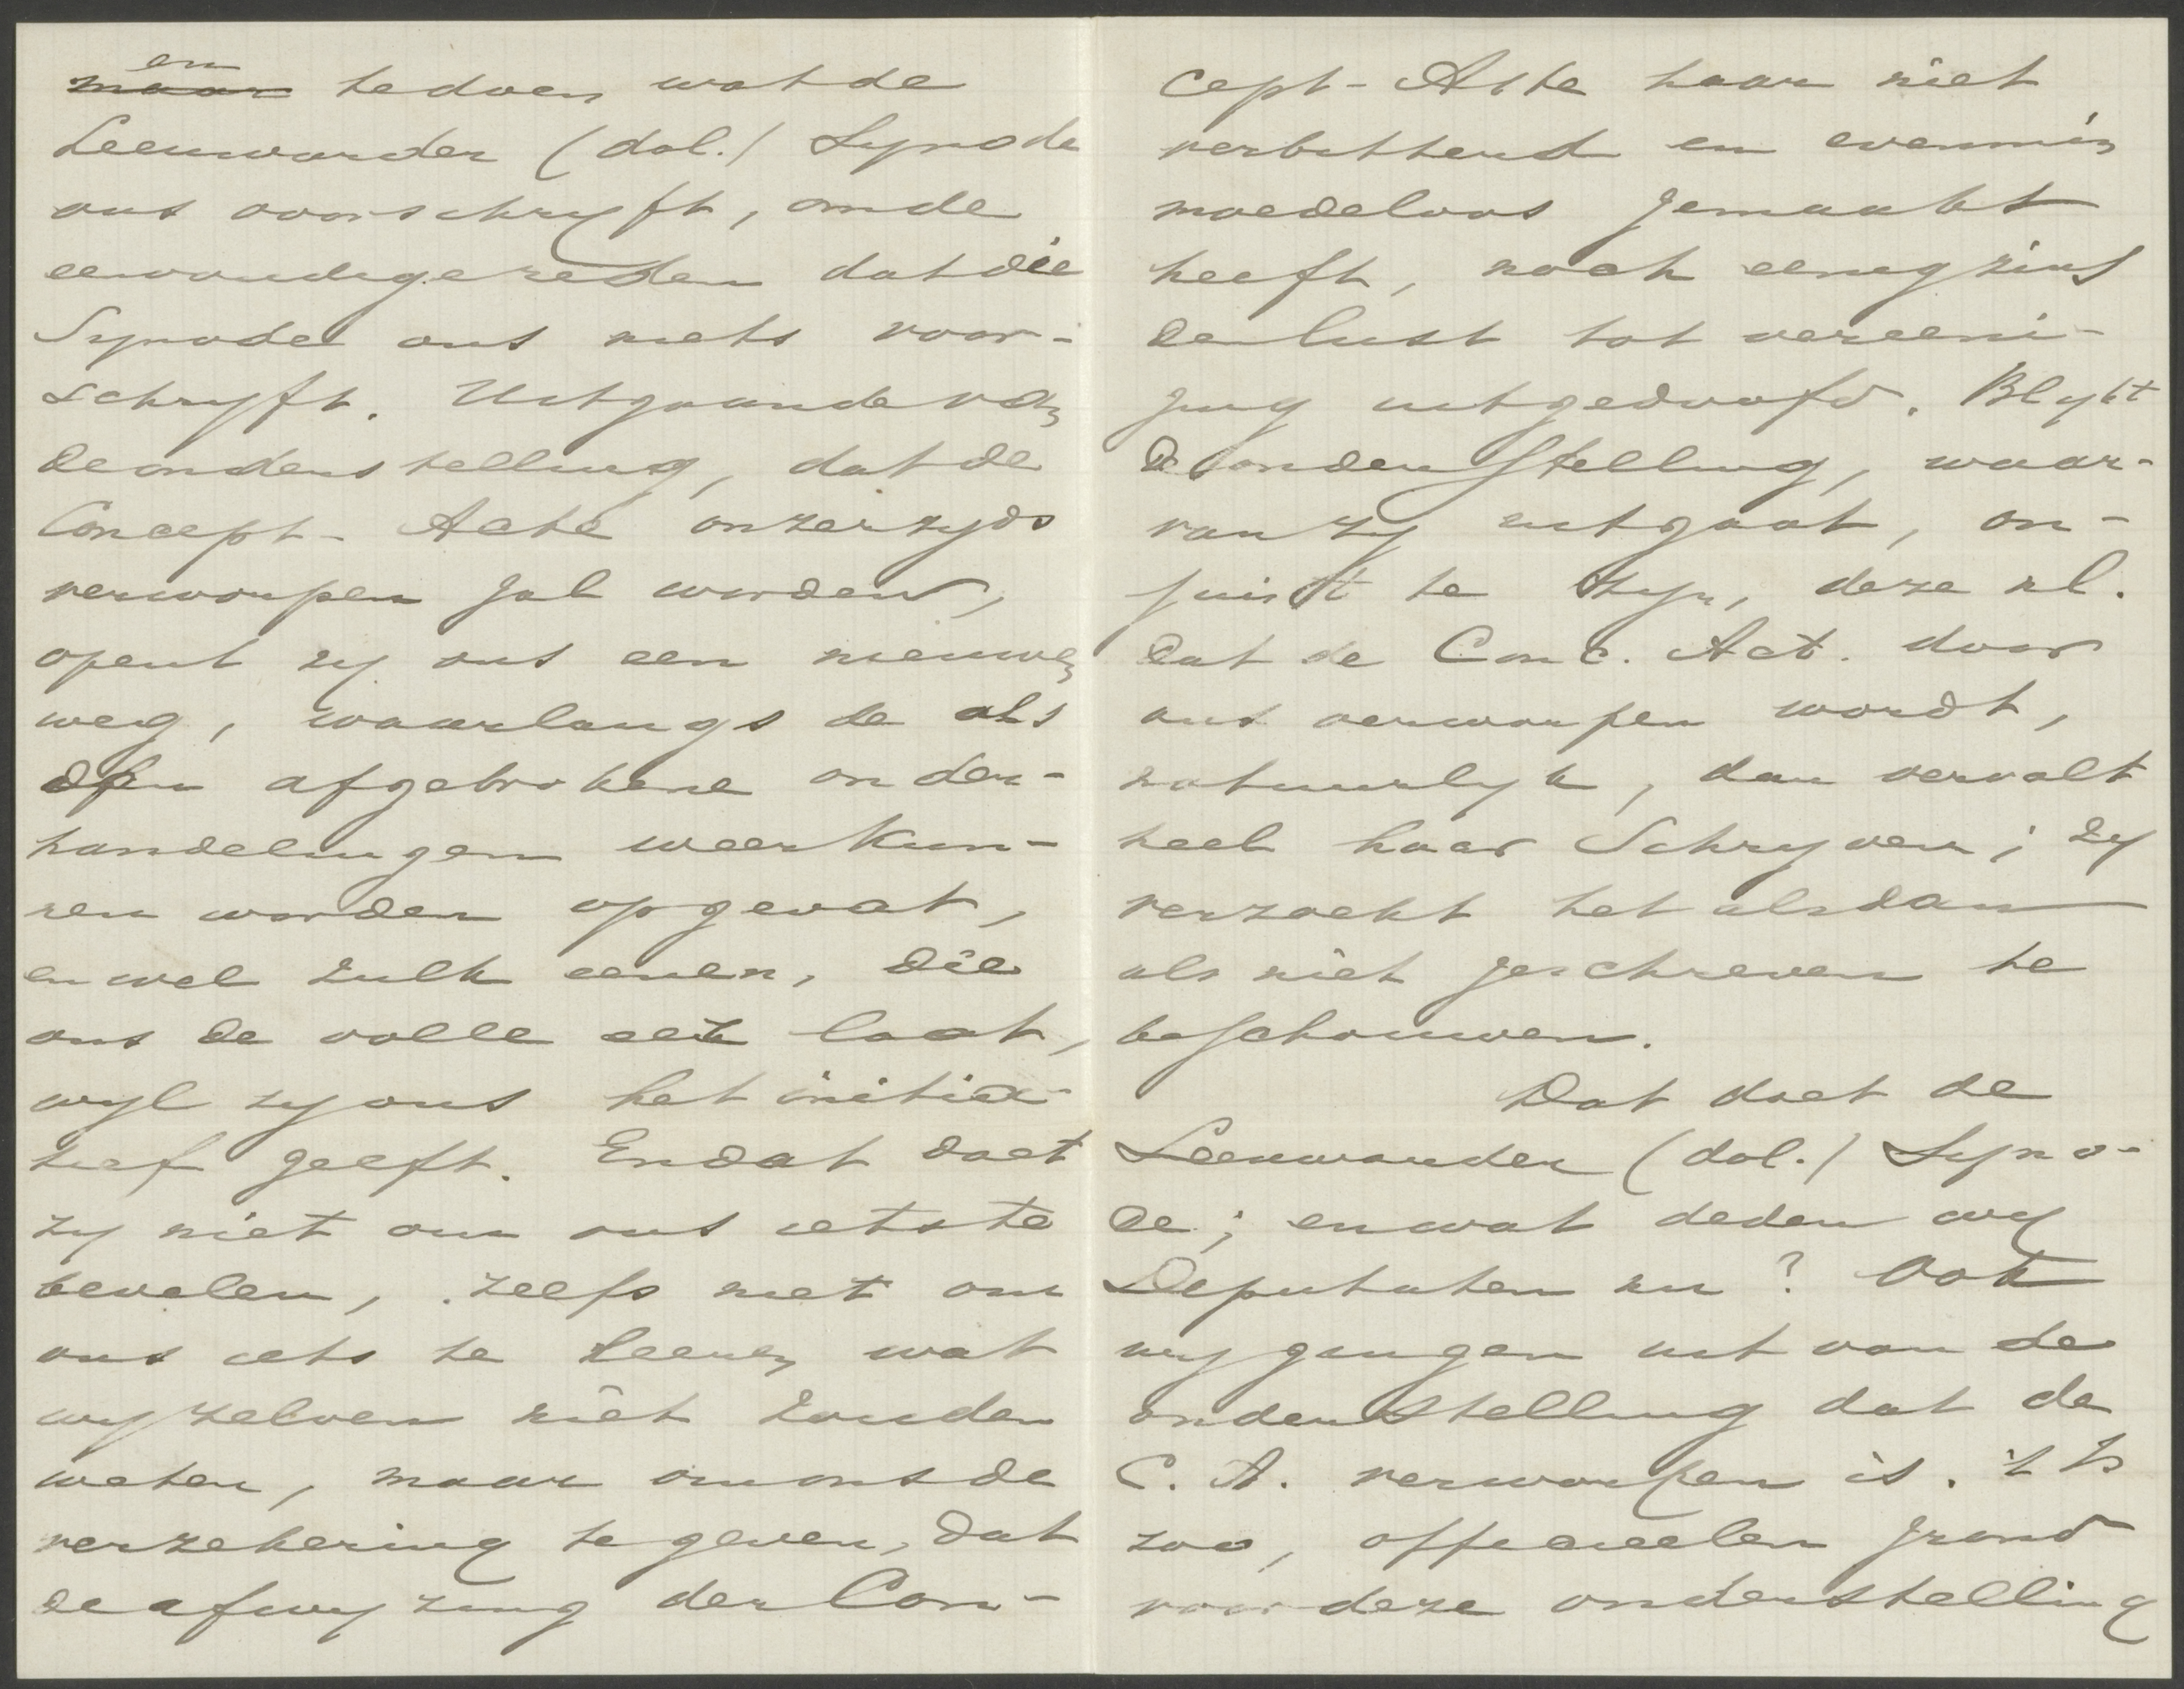 en
maar te doen wat de
Leeuwarder (dol.) Synode
ons voorschryft, om de
eenvoudige reden dat die
Synode ons niets voor-
schryft. Uitgaande van
de onderstelling, dat de
Concept-Acte onzerzyds
verworpen zal worden,
opent zy ons een nieuwen
weg, waarlangs de als
dan afgebrokene onder-
handelingen weer kun-
nen worden opgevat,
en wel zulk eenen, die
ons de volle eer laat,
wyl zy ons het initia-
tief geeft. En dat doet
zy niet om ons iets te
bevelen, zelfs niet om
ons iets te leeren wat
wy zelven niet zouden
weten, maar om ons de
verzekering te geven, dat
de afwyzing der Con-
cept-Acte haar niet
verbitterd en evenmin
moedeloos gemaakt
heeft, noch eenigzins
den lust tot vereeni-
ging uitgedoofd. Blykt
de onderstelling, waar-
van zy uitgaat, on-
juist te zyn, deze nl.
dat de Conc. Act. door
ons verworpen wordt,
natuurlyk, dan vervalt
heel haar Schryven; zy
verzoekt het alsdan
als niet geschreven te
beschouwen.
Dat doet de
Leeuwarder (dol.) Syno-
de; en wat deden wy
Deputaten nu? Ook
wy gingen uit van de
onderstelling dat de
C. A. verworpen is. 't Is
zoo, officieelen grond
voor deze onderstelling